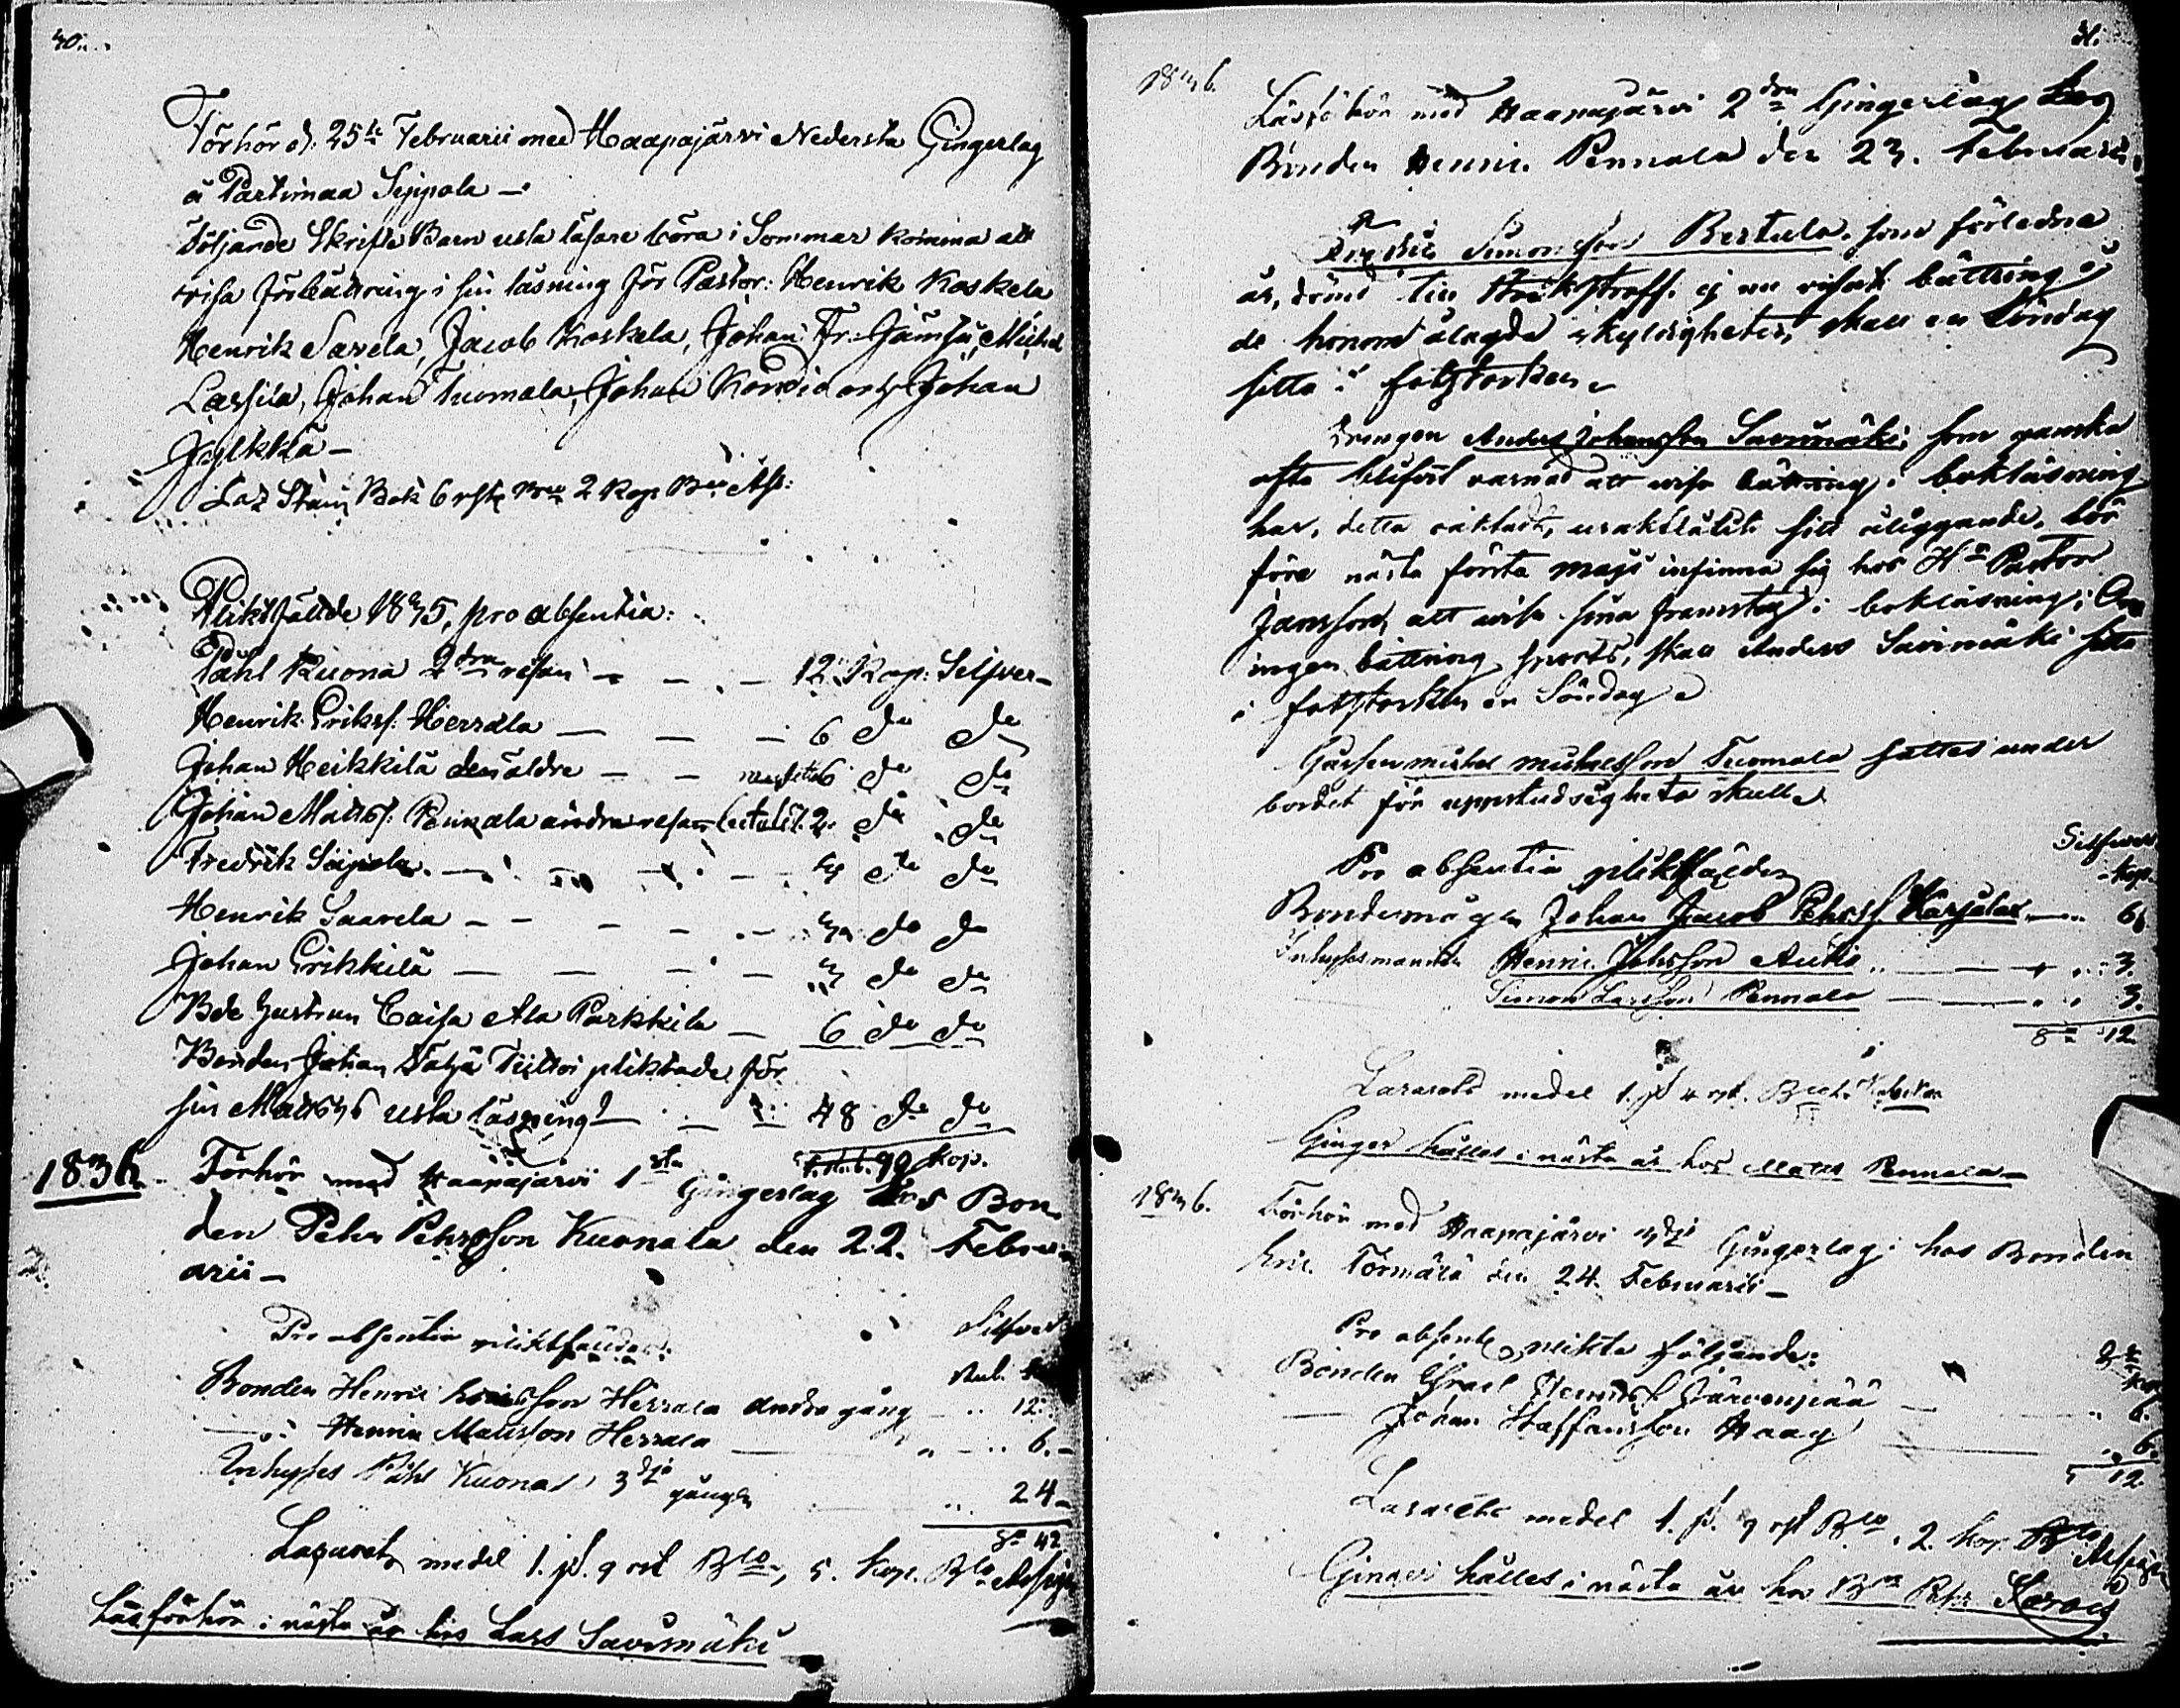 30.
Förhör d. 25te Februarii med Haapajärvi Nedersta Gingerlag
å Partimaa Seppola —
Följande Skrifte Barn usla läsare böra i Sommar komma att
visa förbättring i sin läsning för Pastor: Henrik Koskela
Henrik Savela, Jacob Koskela, Johan Fr. Jämsä, Michel
Lassila, Johan Tuomala, Johan och Johan
Jylkkä —
Laz 6 rst 2 Kop Bco Ass:
Pliktfällde 1835, pro absentia:
Påhl Kuona 2dra resan — — — 12 Kop: Silfver —
Henrik Eriksf. Herrala — — — 6 do do
Johan Heikkilä den äldre — — 6 do do
Johan Matts. Pennala andra resan 2. do do
Fredrik — — — — do do
Henrik Saarela — — — — 3 do do
Johan Erikkilä — — — — 3 do do
Bde hustrun Caisa Ala Parkkila — 6 do do
Bonden Johan Tiitto pliktade för
sin usla läsning — — — 48 do do
90 Kop.
1836. Förhör med Haapajärvi 1sta Gingerlag hos Bon
den Pehr Pehrsson Kuonala den 22. Febru-
arii —
Pro absentia pliktfälldes: Silfver
Rub.
Bonden Henric Herrala andra gång — 12.
— " — Henric Mattsson Herrala — " — .. 6. —
Inhyses Påhl Kuona 3dje gången .. 24 —
Sa 42
Lazarets medel 1. rst Bco, 5. kop. Bco Assign
Läsförhör i nästa år hos Lars Savimäki
31.
1836.
Läsförhör med Haapajärvi 2dra Gingerlag hos
Bonden Henric Pennala den 23. Februarii.
Simonsson Bertula, som förledna
år, dömd till ej nu visat bättring
de honom ålagda skyldigheter, skall en Söndag
sitta i fotstocken
Drengen Anders Johansson Savimäki, som ganska
ofta blifvit varnad att visa bättring i bokläsning
har, detta oaktadt, uraktlåtit sitt åliggande, bör
före nästa första maji infinna sig hos Hr Pastor
Jansson, att visa sina framsteg i bokläsning; Om
ingen bättring spords, skall Anders Savimäki sitta
i fotstocken en Söndag
Gossen Michel Michelsson Tuomala sattes under
bordet för uppstudsighets skull
Silfver
Pro absentia pliktfälldes kop.
Bondemågen Johan Jacob Pehrss. Karjala — 6
Inhysesmannen Henric Johsson Autio .. — — 3.
Simon Larsson Pennala — — .. 3.
Sa 12
Lazarets medel 1.
Ginger hålles i nästa år hos Matts Pennala —
1836. Förhör med Haapajärvi 3dje Gingerlag hos Bonden
Eric Törmälä den 24. Februarii —
Pro absentia plikta följande: kop
Bonden Israel Henricss. Järvenpää — " 6.
— Johan Staffansson Haag — " 6.
12
Lazarets medel 1. 9 rst Bco. 2. kop. Bco Assign
Ginger hålles i nästa år hos Bn Pehr